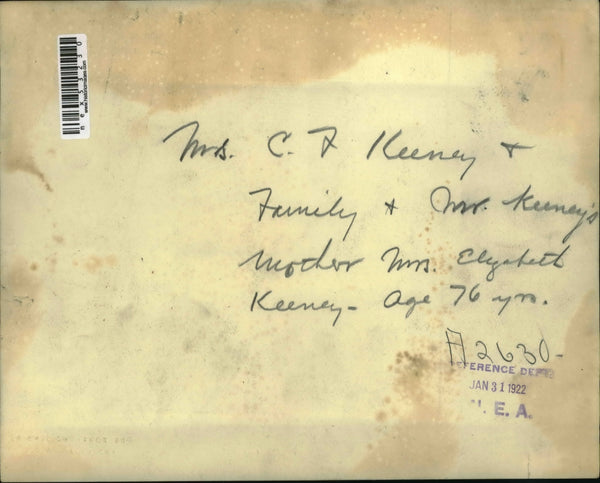 Mrs. C. F Keeney +
Family + Mr. Keeney's
Mother Mrs. Elizabeth
Keeney - Age 76 yrs.
A2630-
REFERENCE DEPT.
JAN 31 1922
N. E. A.